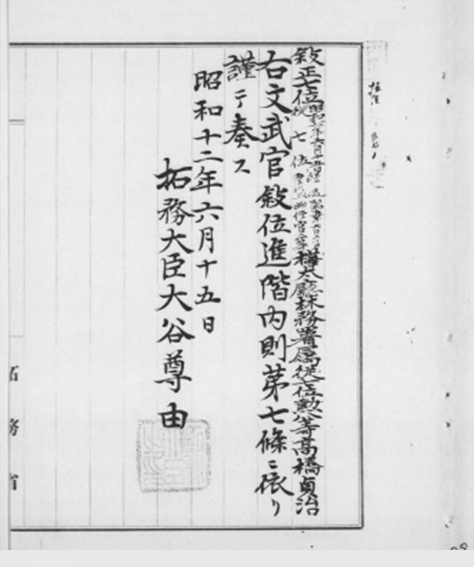 敍正七位
樺太廳林務署屬從七位勲八等髙橋貞治
右文武官敍位進階内則第七條ニ依リ
謹テ奏ス
昭和十二年六月十五日
拓務大臣大谷尊由
拓務省